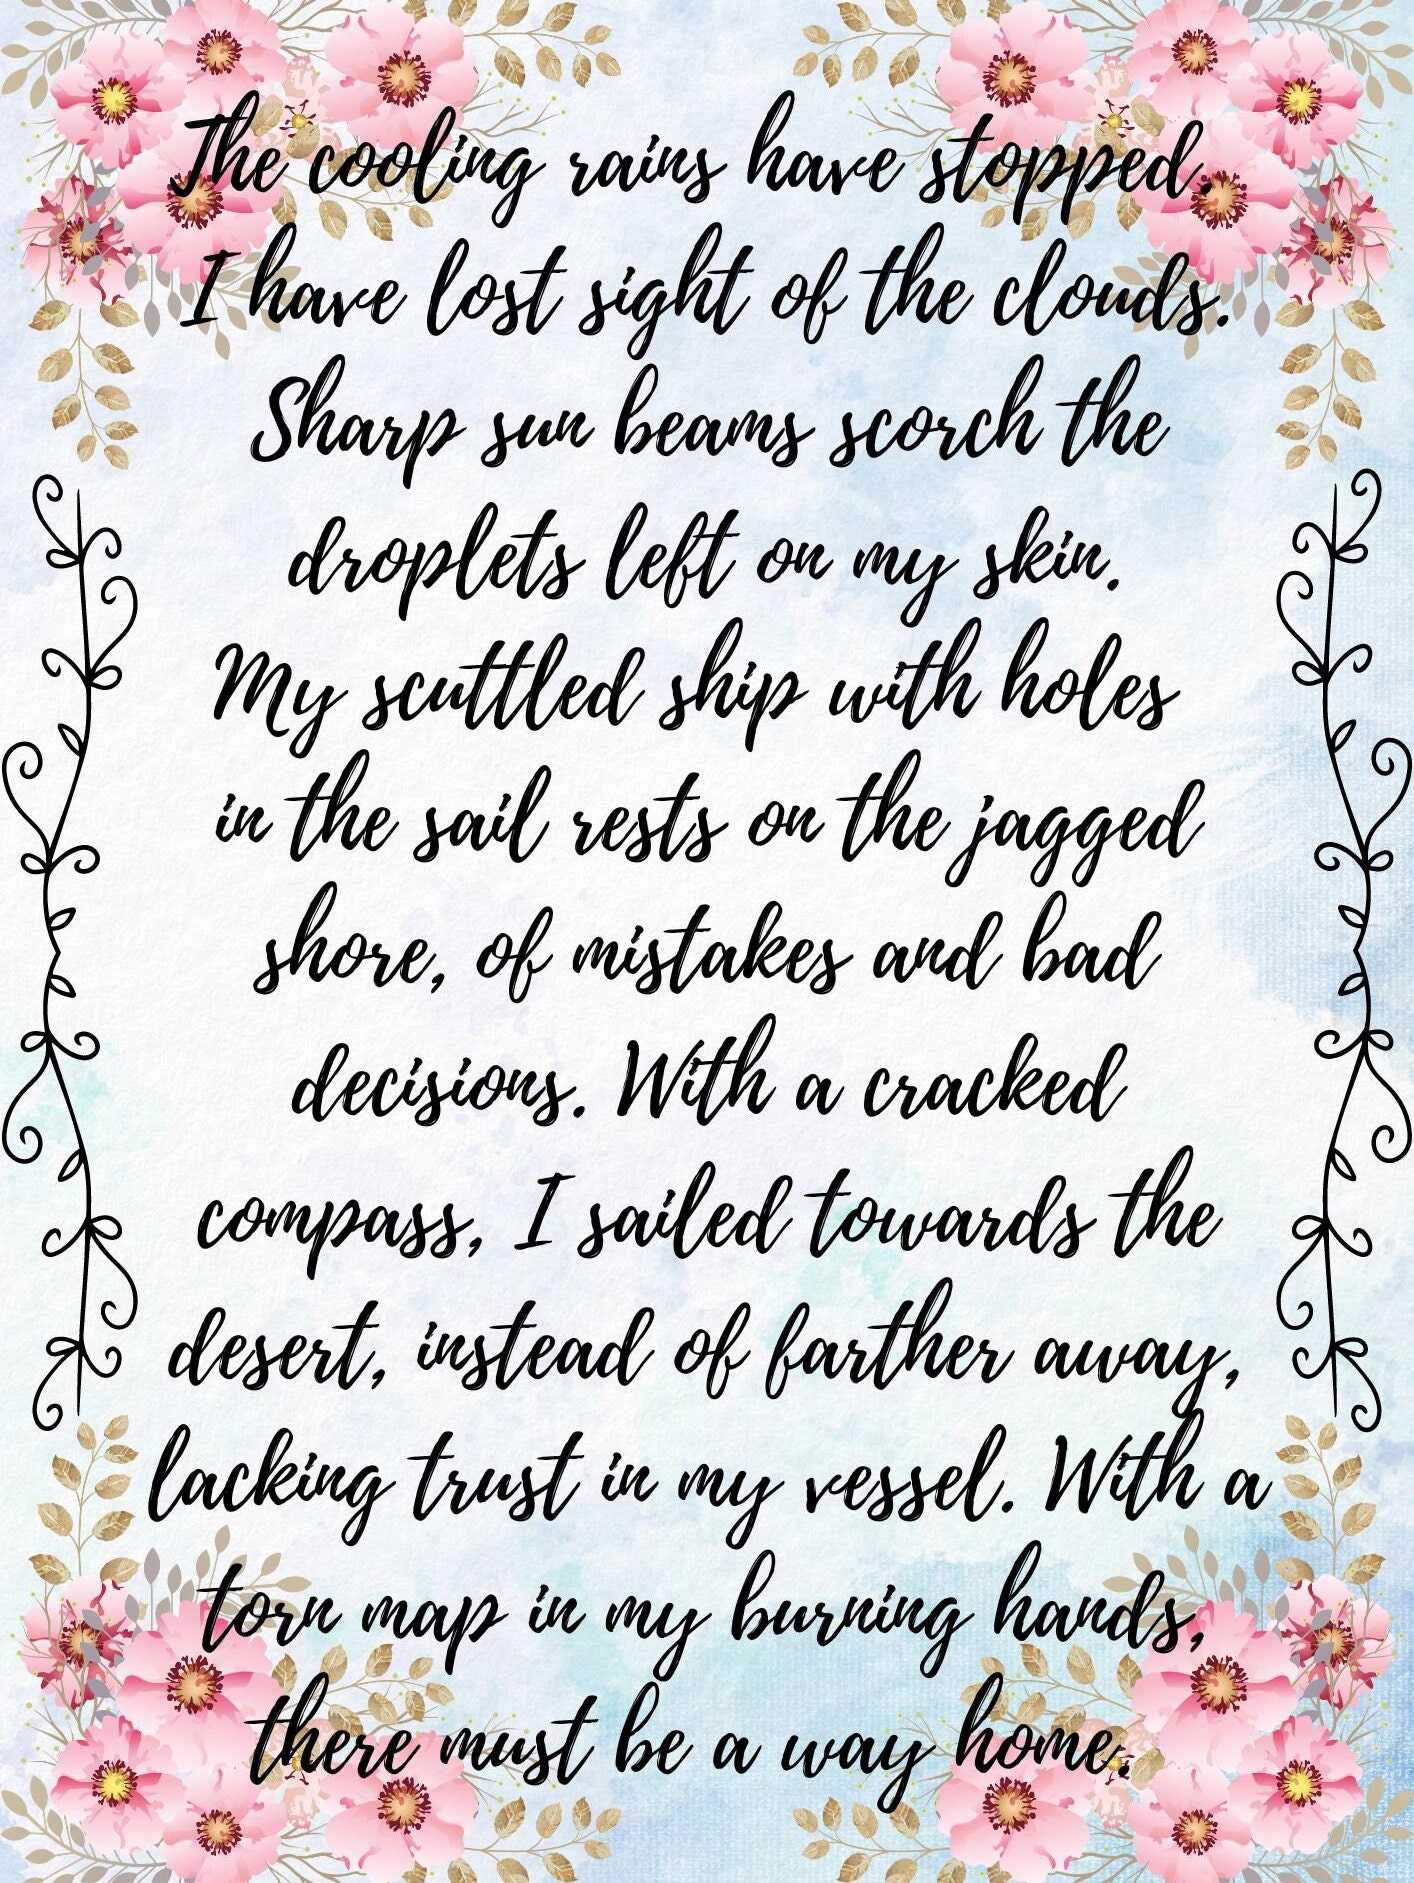 The cooling rains have stopped.
I have lost sight of the clouds.
Sharp sun beams scorch the
droplets left on my skin.
My scuttled ship with holes
in the sail rests on the jagged
shore, of mistakes and bad
decisions. With a cracked
compass, I sailed towards the
desert, instead of farther away,
lacking trust in my vessel. With a
torn map in my burning hands,
there must be a way home.